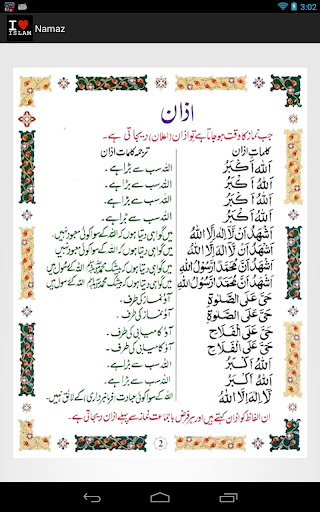 3:02
I ♥ ISLAM
Namaz
اذان
جب نماز کا وقت ہو جاتا ہے تو اذان (اعلان) دی جاتی ہے۔
کلمات اذان ترجمہ کلمات اذان
اَللهُ اَكْبَرُ اللہ سب سے بڑا ہے۔
اَللهُ اَكْبَرُ اللہ سب سے بڑا ہے۔
اَللهُ اَكْبَرُ اللہ سب سے بڑا ہے۔
اَللهُ اَكْبَرُ اللہ سب سے بڑا ہے۔
اَشْهَدُ اَنْ لَّا اِلٰهَ اِلَّا اللهُ میں گواہی دیتا ہوں کہ اللہ کے سوا کوئی معبود نہیں۔
اَشْهَدُ اَنْ لَّا اِلٰهَ اِلَّا اللهُ میں گواہی دیتا ہوں کہ اللہ کے سوا کوئی معبود نہیں۔
اَشْهَدُ اَنَّ مُحَمَّدًا رَّسُوْلُ اللهِ میں گواہی دیتا ہوں کہ بیشک محمد ﷺ اللہ کے رسول ہیں
اَشْهَدُ اَنَّ مُحَمَّدًا رَّسُوْلُ اللهِ میں گواہی دیتا ہوں کہ بیشک محمد ﷺ اللہ کے رسول ہیں
حَیَّ عَلَى الصَّلٰوةِ آؤ نماز کی طرف۔
حَیَّ عَلَى الصَّلٰوةِ آؤ نماز کی طرف۔
حَیَّ عَلَى الْفَلَاحِ آؤ کامیابی کی طرف۔
حَیَّ عَلَى الْفَلَاحِ آؤ کامیابی کی طرف۔
اَللهُ اَكْبَرُ اللہ سب سے بڑا ہے۔
اَللهُ اَكْبَرُ اللہ سب سے بڑا ہے۔
لَا اِلٰهَ اِلَّا اللهُ اللہ کے سوا کوئی عبادت (فرمانبرداری) کے لائق نہیں۔
ان الفاظ کو اذان کہتے ہیں اور ہر فرض با جماعت نماز سے پہلے اذان دی جاتی ہے۔
2